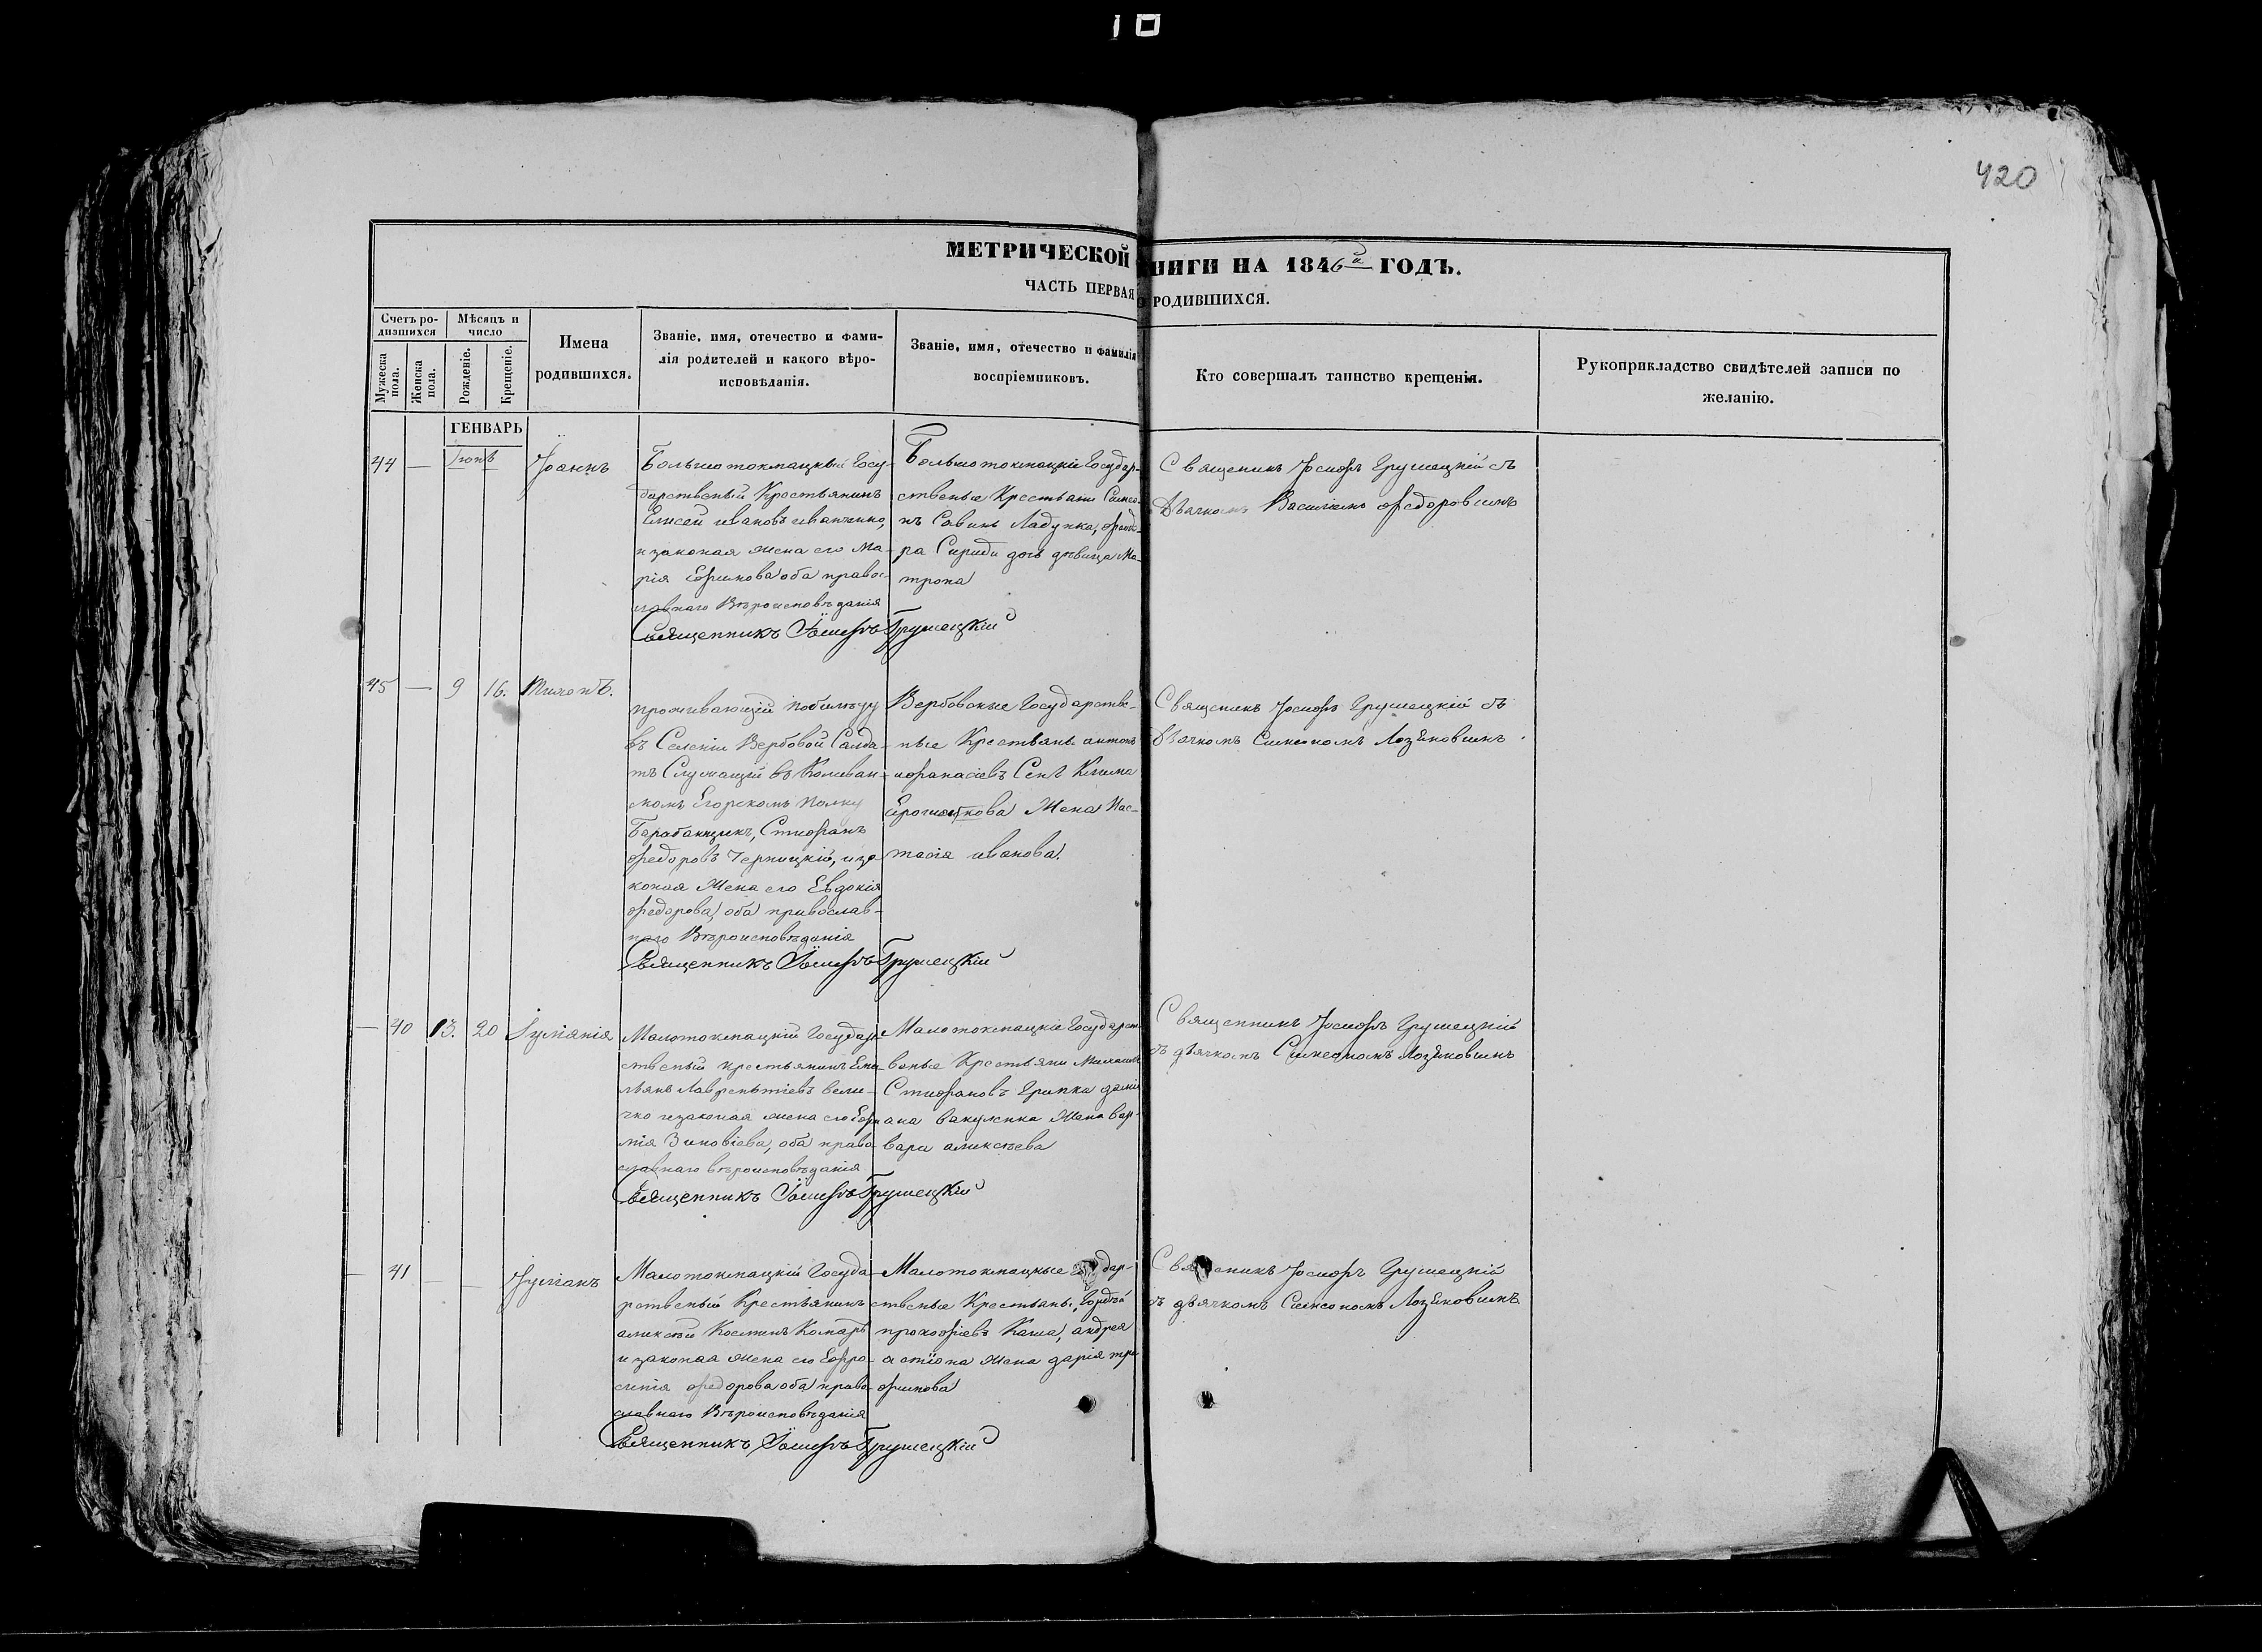 10
420
МЕТРИЧЕСКОЙ КНИГИ НА 1846й ГОДЪ.
ЧАСТЬ ПЕРВАЯ О РОДИВШИХСЯ.
Счетъ ро-
дившихся
Мужеска пола.
Женска пола.
Мѣсяцъ и
число
Рожденіе.
Крещеніе.
Имена
родившихся.
Званіе, имя, отечество и фами-
лія родителей и какого вѣро-
исповѣданія.
Званіе, имя, отечество и фамилія
воспріемниковъ.
Кто совершалъ таинство крещенія.
Рукоприкладство свидѣтелей записи по
желанію.
ГЕНВАРЬ
44 —
Іоаннъ
Большотокмацкый Госу-
дарственый Крестьянинъ
Елисей ивановъ иванченко,
и законая жена его Ма-
рія Ефимова оба правос-
лавнаго Вѣроисповѣданія
Священникъ Іосифъ Грушецкій
Большотокмацкіе Государ-
ственые Крестьяни Симео-
нъ Савинъ Ладунка, федо-
ра дочь дѣвица Ма-
трона
Священикъ Іосифъ Грушецкій съ
Дьячкомъ Василіемъ федоровимъ
45 — 9 16.
проживающій побилѣту
въ Селеніи Вербовой Салда-
тъ Служащій въ Коливан-
скомъ Егорскомъ Полку
Барабанщикъ, Стифанъ
федоровъ Черницкій, и за-
коная Жена его Евдокія
федорова, оба православ-
наго Вѣроисповѣданія
Священникъ Іосифъ Грушецкій
Вербовские Государстве-
ные Крестьяны антонъ
афанасіевъ Клима
Жена Нас-
тасія иванова.
Священикъ Іосифъ Грушецкій съ
дьячкомъ Симеономъ Лозиновимъ.
— 40 13. 20 Іулиянія
Малотокмацкій Государ-
ственый крестьянинъ Еме-
льянъ Лаврентіевъ вели-
чко и законая жена его
Зиновіева, оба право-
славнаго вѣроисповѣданія
Священникъ Іосифъ Грушецкій
Малотокмацкіе Государст-
веные Крестьяни Михаилъ
Стифановъ Гринка даміи-
ана вакуленка Жена вар-
вара алексѣева
Священникъ Іосифъ Грушецкій
съ дьячкомъ Симеономъ Лозиновимъ
— 41 — —
Малотокмацкій Госуда-
рственый Крестьянинъ
алексѣй Косминъ Комаръ
и законая жена его Ефро-
синія федорова оба право-
славнаго Вѣроисповѣданія
Священникъ Іосифъ Грушецкій
Малотокмацкые дар-
ственые Крестьяны,
прокофіевъ Каша, андрея
жена дарія тро-
фимова
Священикъ Іосифъ Грушецкій
съ дьячкомъ Симеономъ Лозиновимъ.